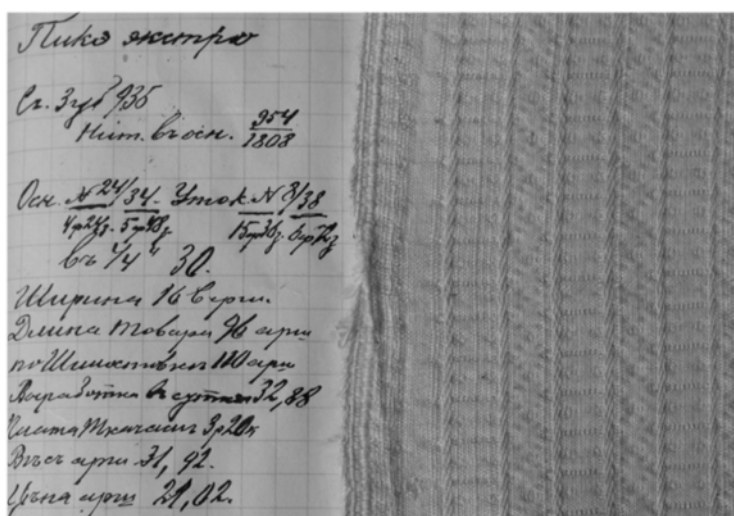 Пике экстра
Съ. Зуб 936
Нит. въ осн. 954/1808
Осн. № 24/34 - Уток № 8/38
въ 1/4 " 30.
Ширина 16 верш.
Длина товара 96 арш
по Шлихтовкѣ 110 арш
Выработка въ сутки 32,88
Плата Ткачамъ 3р20к
Вѣсъ арш. 31,92.
Цѣна арш 21,02.